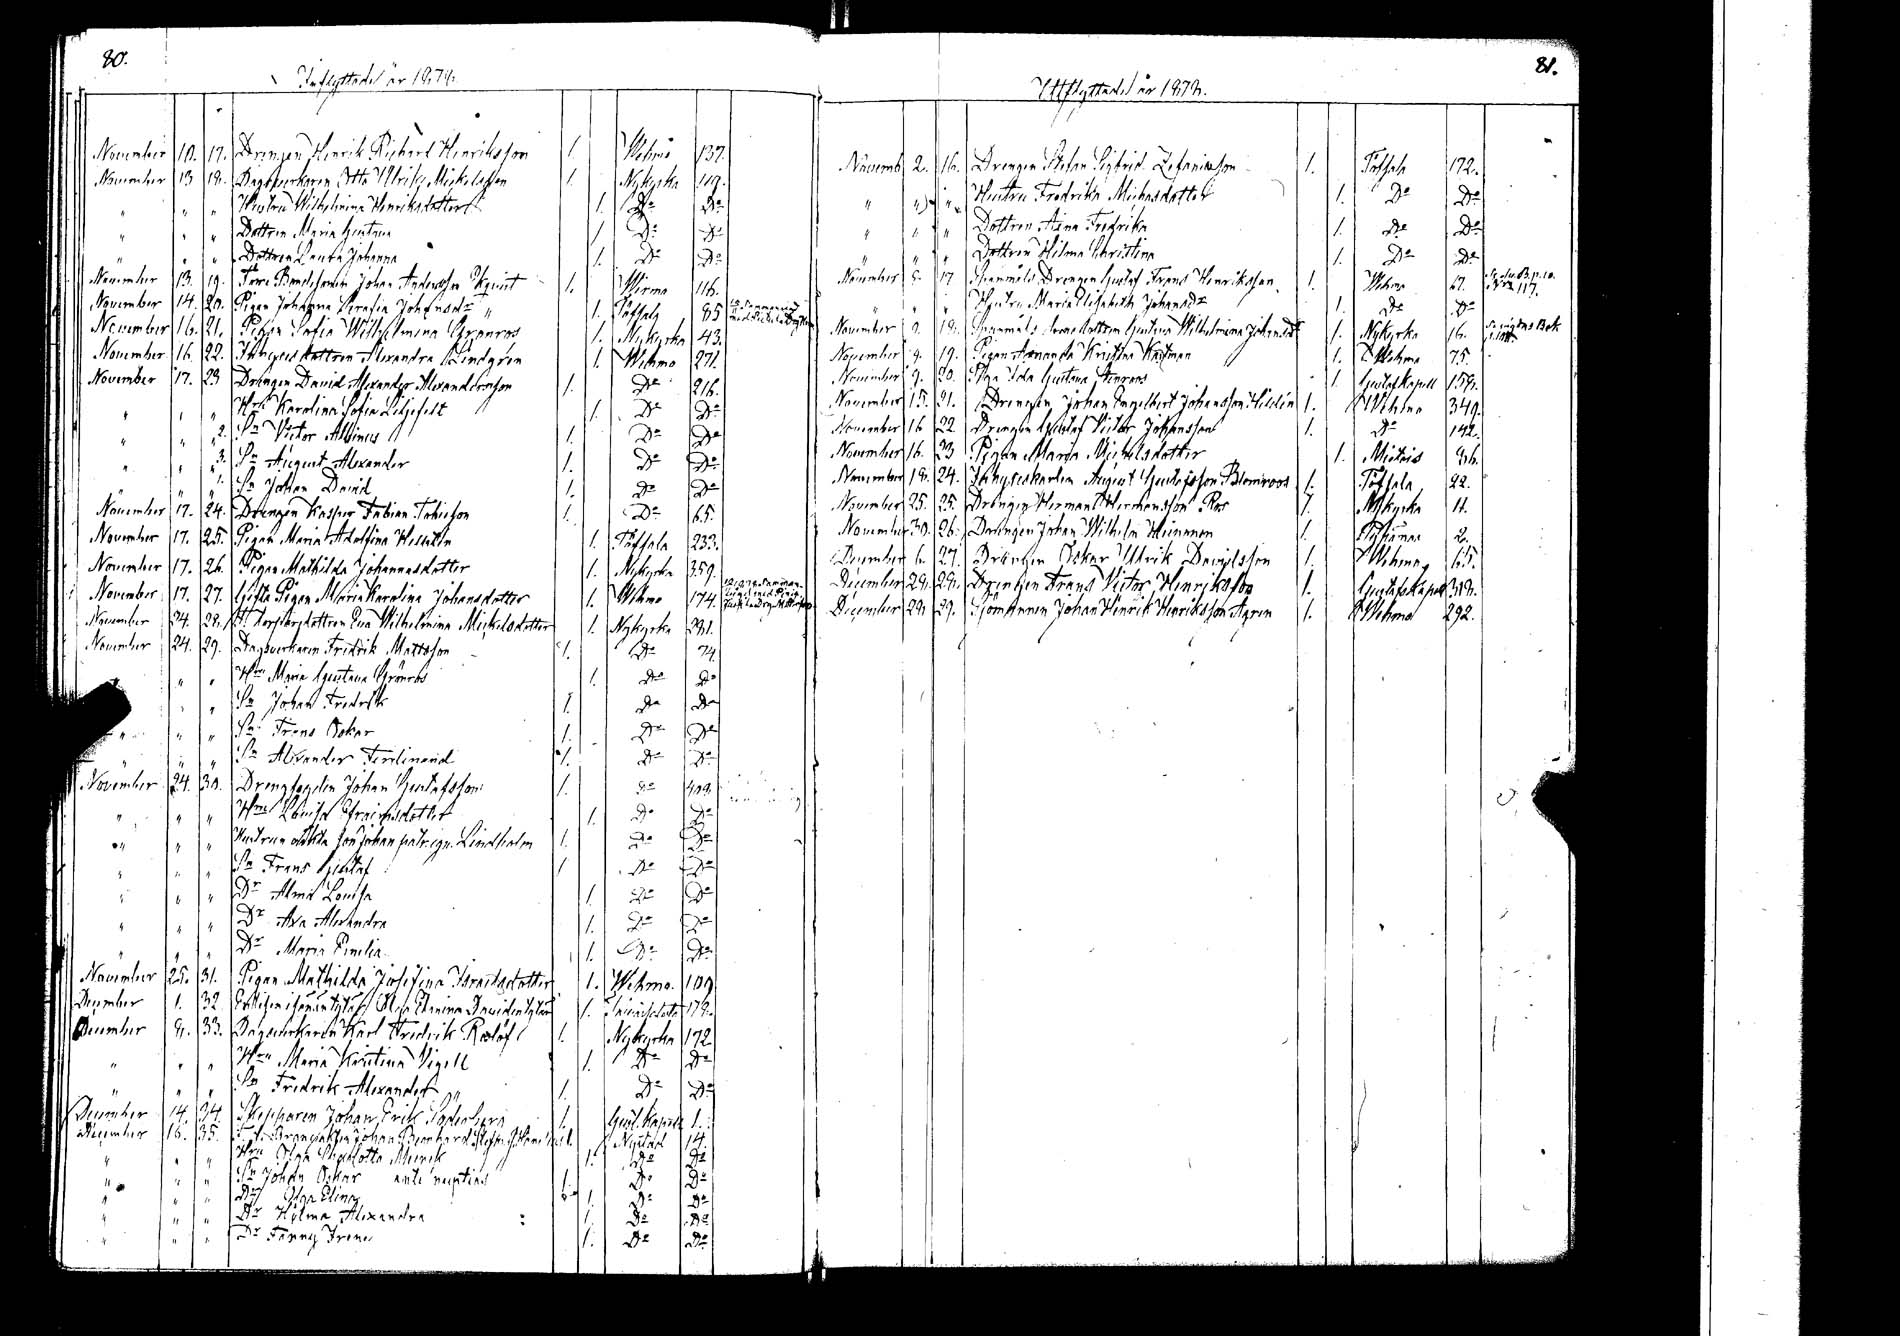 80.
Inflyttade år 1878.
November 10. 17. Drengen Henrik Richard Henriksson 1. Wehmo 137.
November 13 18. Dagsverkaren Otto Ulrik Mickelsson 1. Nykyrka 119.
" " " Hustru Wilhelmina Henriksdotter 1. Do Do
" " " Dottren Maria Gustava 1. Do Do
" " " Dottren Laura Johanna 1. Do Do
November 13. 19. Förre Bondesonen Johan Andersson Qvint 1. Wirmo 116.
November 14. 20. Pigan Johanna Serafia Johansdr 1. Töfsala 85
November 16. 21. Pigan Sofia Wilhelmina Grönroos 1. Nykyrka 43.
November 16. 22. Inhysesdottren Alexandra Lindgren 1. Wehmo 271.
November 17. 23 Drengen David Alexander Alexandersson 1. Do 216.
" " " Hru Karolina Sofia Liljefelt 1. Do Do
" " " 2. Sn Victor Albinus 1. Do Do
" " " 3. Sn August Alexander 1. Do Do
" " " Sn Johan David 1. Do Do
November 17. 24. Drengen Kasper Fabian Fabiesson 1. Do 65.
November 17. 25. Pigan Maria Adolfina 1. Töfsala 233.
November 17. 26. Pigan Mathilda Johannasdotter 1. Nykyrka 359.
November 17. 27. Gifta Pigan Maria Karolina Johansdotter 1. Wehmo 174.
November 24. 28. Torpardottren Eva Wilhelmina Mickelsdotter 1. Nykyrka 281.
November 24. 29. Dagsverkaren Fredrik Mattsson 1. Do 74.
" " Hru Maria Gustava Grönroos 1. Do Do
" " Sn Johan Fredrik 1. Do Do
" " " Sn Frans Oskar 1. Do Do
" " " Sn Alexander Ferdinand 1. Do Do
November 24. 30. Drengfogden Johan Gustafsson 1. Do 408.
" " " Hru Lovisa Efraimsdotter 1. Do Do
" " " Hustrun Son Johan Lindholm 1. Do Do
" " " Sn Frans Gustaf 1 Do Do
" " " Dr Alma Lovisa 1. Do Do
" " " Dr Axa Alexandra 1. Do Do
" " " Dr Maria Emilia 1. Do Do
November 25. 31. Pigan Mathilda Josefina Israelsdotter 1. Wehmo. 109
December 1. 32. Olga 1. 178.
December 8. 33. Dagsverkaren Karl Fredrik Roslöf 1. Nykyrka 172
" " " Hru Maria Kristina Vigell 1. Do Do
" " " Sn Fredrik Alexander 1. Do Do
December 14. 34. Skepparen Johan Erik Söderberg 1. Gust. Kapell 1.
December 16. 35. Johan Bernhard 1. Nystad 14.
" " " Hru Olga Charlotta 1. Do Do
" " " Sn Johan Oskar ante nuptias 1. Do Do
" " " Dr Olga Elina 1. Do Do
" " " Dr Hilma Alexandra 1. Do Do
" " " Dr Fanny Irene 1. Do Do
81.
Utflyttade år 1878.
Novemb 2. 16. Drengen Stefan Sigfrid Zefaniasson 1. Töfsala 172.
" " " Hustru Fredrika Michaesdotter 1. Do Do
" " " Dottren Aina Fredrika 1. Do Do
" " " Dottren Hilma Christina 1. Do Do
November 8. 17 Drengen Gustaf Frans Henriksson 1. Wehmo 67. 117.
" " " Hustru Maria Elisabeth Johansdr 1. Do Do
November 9. 18. Gustava Wilhelmina Johansdr 1. Nykyrka 16.
November 9. 19. Pigan Amanda Kristina 1. Wehmo 75.
November 9. 20. Piga Ida Gustava 1. Gustaf Kapell 158.
November 15. 21. Drengen Johan Engelbert Johansson Hildén 1. Wehmo 349.
November 16 22. Drengen Gustaf Victor Johansson 1. Do 142.
November 16. 23 Pigan Maria Michelsdotter 1. Mietois 86.
November 18. 24. Inhyseskarlen August Gustafsson Blomroos 1. Töfsala 22.
November 25. 25. Drängen Herman Hermansson Ros 1. Nykyrka 11.
November 30. 26. Drengen Johan Wilhelm Heinonen 1. Pyhämaa 2.
December 6. 27. Drängen Oskar Ulrik Davidsson 1. Wehmo 65.
December 28. 28. Drengen Frans Victor Henriksson 1. Gustafs Kapell 318.
December 28. 29. Sjömannen Johan Henrik Henriksson Ågren 1. Wehmo 292.